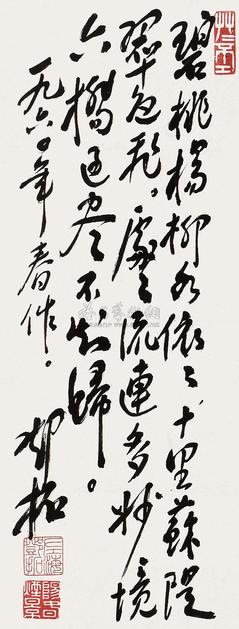 碧桃楊柳水依〻、十里蘇隄
翠色飛。處〻流連多妙境
六橋過尽不知歸。
一九六〇年春作。鄧拓